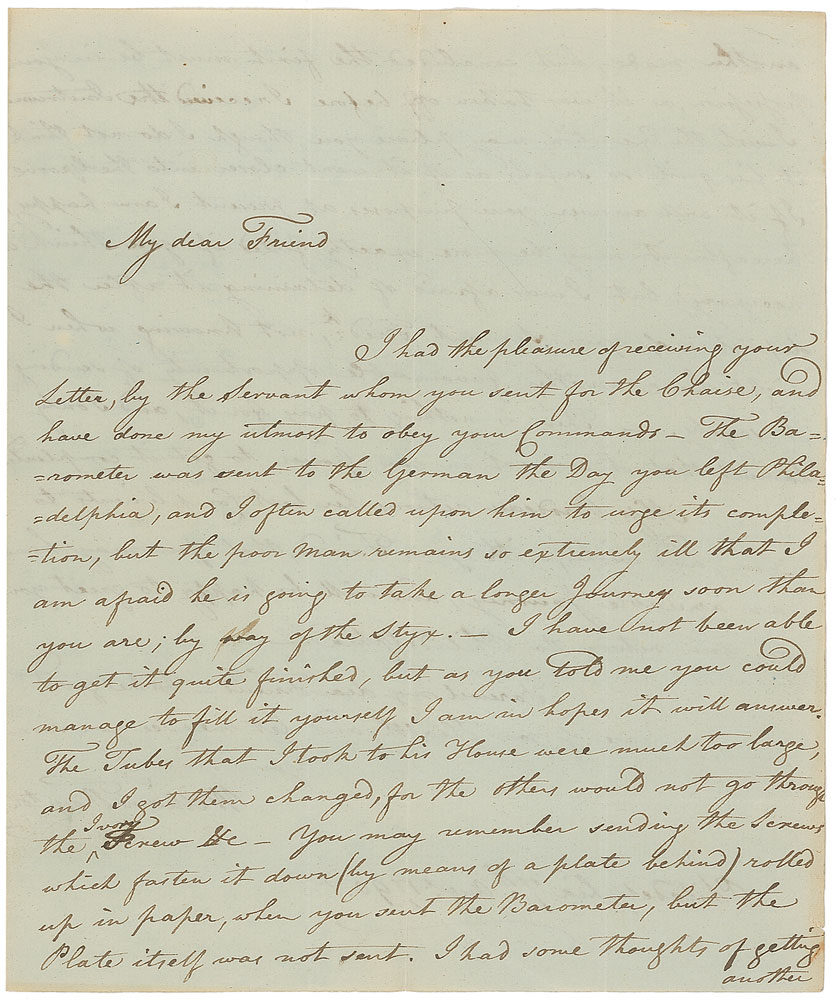 My dear Friend
I had the pleasure of receiving your
Letter, by the Servant whom you sent for the Chaise, and
have done my utmost to obey your Commands – The Ba-
=rometer was sent to the German the Day you left Phila=
=delphia, and I often called upon him to urge its comple=
=tion, but the poor man remains so extremely ill that I
am afraid he is going to take a longer Journey soon than
you are; by way of the Styx. – I have not been able
to get it quite finished, but as you told me you could
manage to fill it yourself I am in hopes it will answer.
The Tubes that I took to his House were much too large,
and I got them changed, for the others would not go through
the Ivory Screw &c – You may remember sending the Screws
which fasten it down (by means of a plate behind) rolled
up in paper, when you sent the Barometer, but the
Plate itself was not sent. I had some thoughts of getting
another